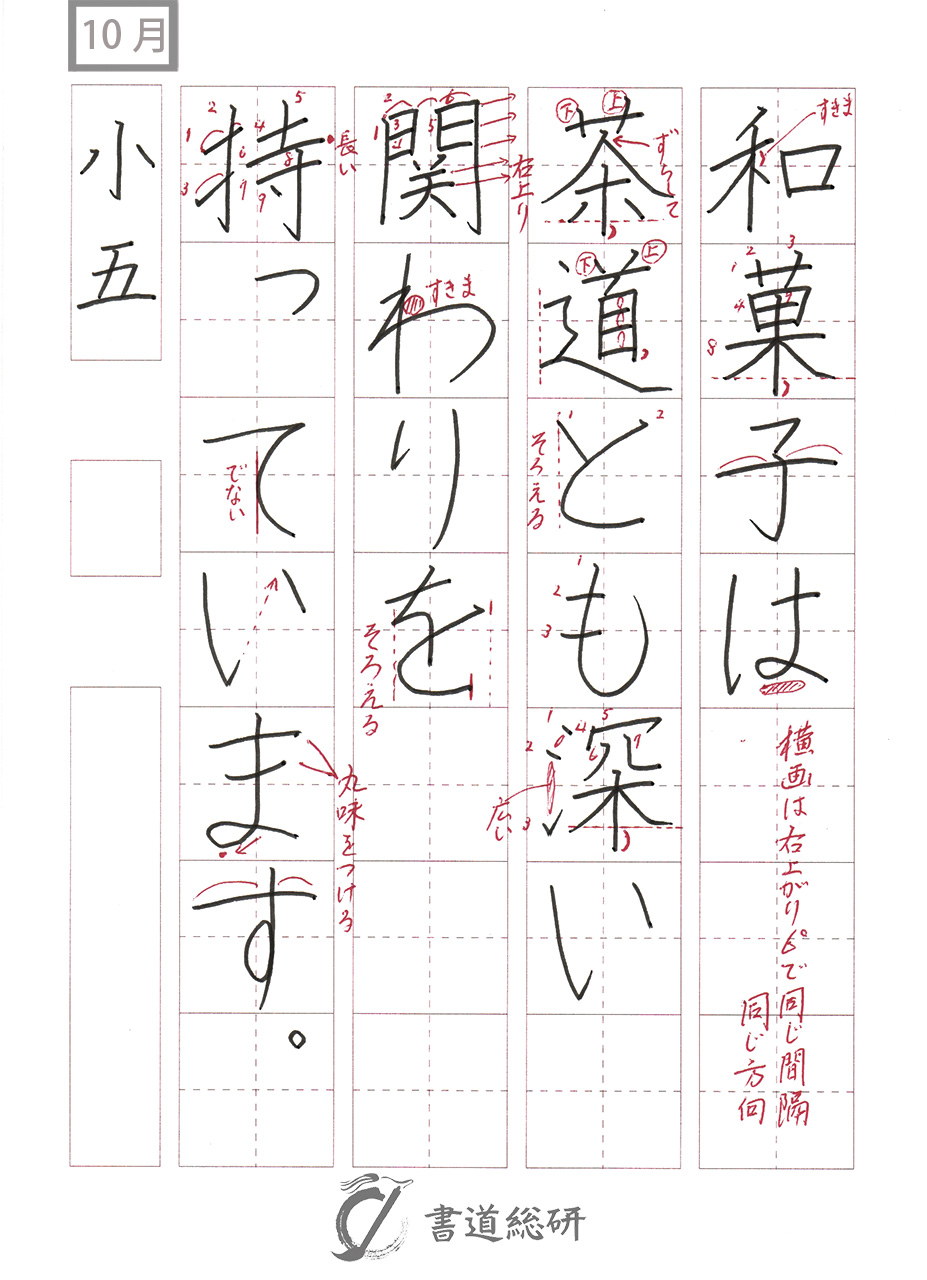 10月
和菓子は
すきま
横画は右上がり6°で同じ間隔
同じ方向
茶道とも深い
下
上
ずらして
下
上
そろえる
広い
関わりを
右上り
すきま
そろえる
持っています。
長い
でない
丸味をつける
小五
書道総研